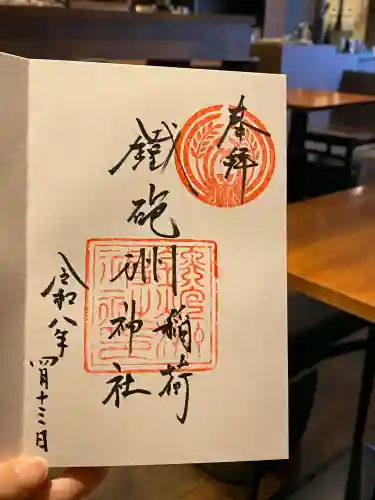 奉拝
鐵砲洲稲荷神社
令和八年
四月十三日